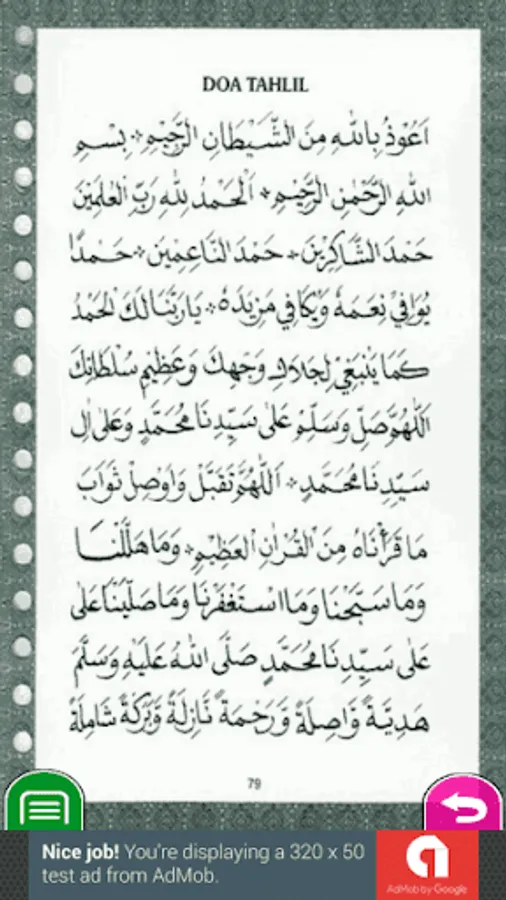 DOA TAHLIL
اَعُوْذُ بِاللهِ مِنَ الشَّيْطَانِ الرَّجِيْمِ * بِسْمِ
اللهِ الرَّحْمٰنِ الرَّحِيْمِ * اَلْحَمْدُ لِلّٰهِ رَبِّ الْعٰلَمِيْنَ
حَمْدَ الشَّاكِرِيْنَ * حَمْدَ النَّاعِمِيْنَ * حَمْدًا
يُوَافِيْ نِعَمَهُ وَيُكَافِي مَزِيْدَهُ * يَارَبَّنَا لَكَ الْحَمْدُ
كَمَا يَنْبَغِيْ لِجَلَالِ وَجْهِكَ وَعَظِيْمِ سُلْطَانِكَ
اَللّٰهُمَّ صَلِّ وَسَلِّمْ عَلٰى سَيِّدِنَا مُحَمَّدٍ وَعَلٰى اٰلِ
سَيِّدِنَا مُحَمَّدٍ * اَللّٰهُمَّ تَقَبَّلْ وَاَوْصِلْ ثَوَابَ
مَا قَرَأْنَاهُ مِنَ الْقُرْاٰنِ الْعَظِيْمِ * وَمَا هَلَّلْنَا
وَمَا سَبَّحْنَا وَمَا اسْتَغْفَرْنَا وَمَا صَلَّيْنَا عَلٰى
عَلٰى سَيِّدِنَا مُحَمَّدٍ صَلَّى اللهُ عَلَيْهِ وَسَلَّمَ
هَدِيَّةً وَّاصِلَةً وَّرَحْمَةً نَّازِلَةً وَّبَرَكَةً شَامِلَةً
79
Nice job! You're displaying a 320 x 50
test ad from AdMob.
AdMob by Google